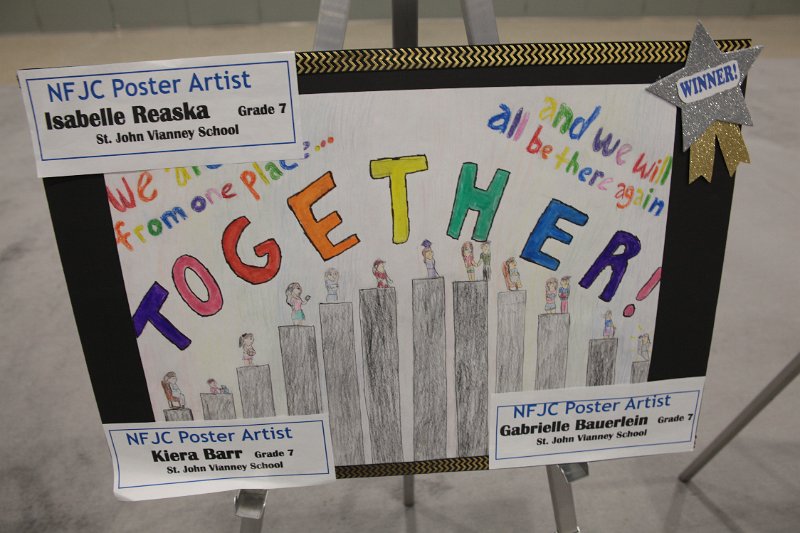 NFJC Poster Artist
Isabelle Reaska Grade 7
St. John Vianney School
WINNER!
We are
from one place...
and we will
all be there again
TOGETHER!
NFJC Poster Artist
Kiera Barr Grade 7
St. John Vianney School
NFJC Poster Artist
Gabrielle Bauerlein Grade 7
St. John Vianney School